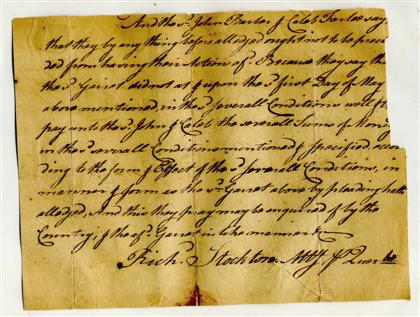 And the sd. John Barber & Caleb say
that they by any thing before alledged ought not to be preclu
ded from having their Action afsd. Because they say that
the sd. Garret did not at & upon the sd. first Day of May
above mentioned in the sd. severall Conditions well &
pay unto the sd. John & Caleb the severall Sums of Money
in the sd. severall Conditions mentioned & specified accor
ding to the form & Effect of the sd. severall Conditions, in
manner & form as the sd. Garret above by pleading hath
alledged, And this they pray may be enquired of by the
Country; & the afsd. Garret in like manner &c
Richd. Stockton Atty. pr. Quer